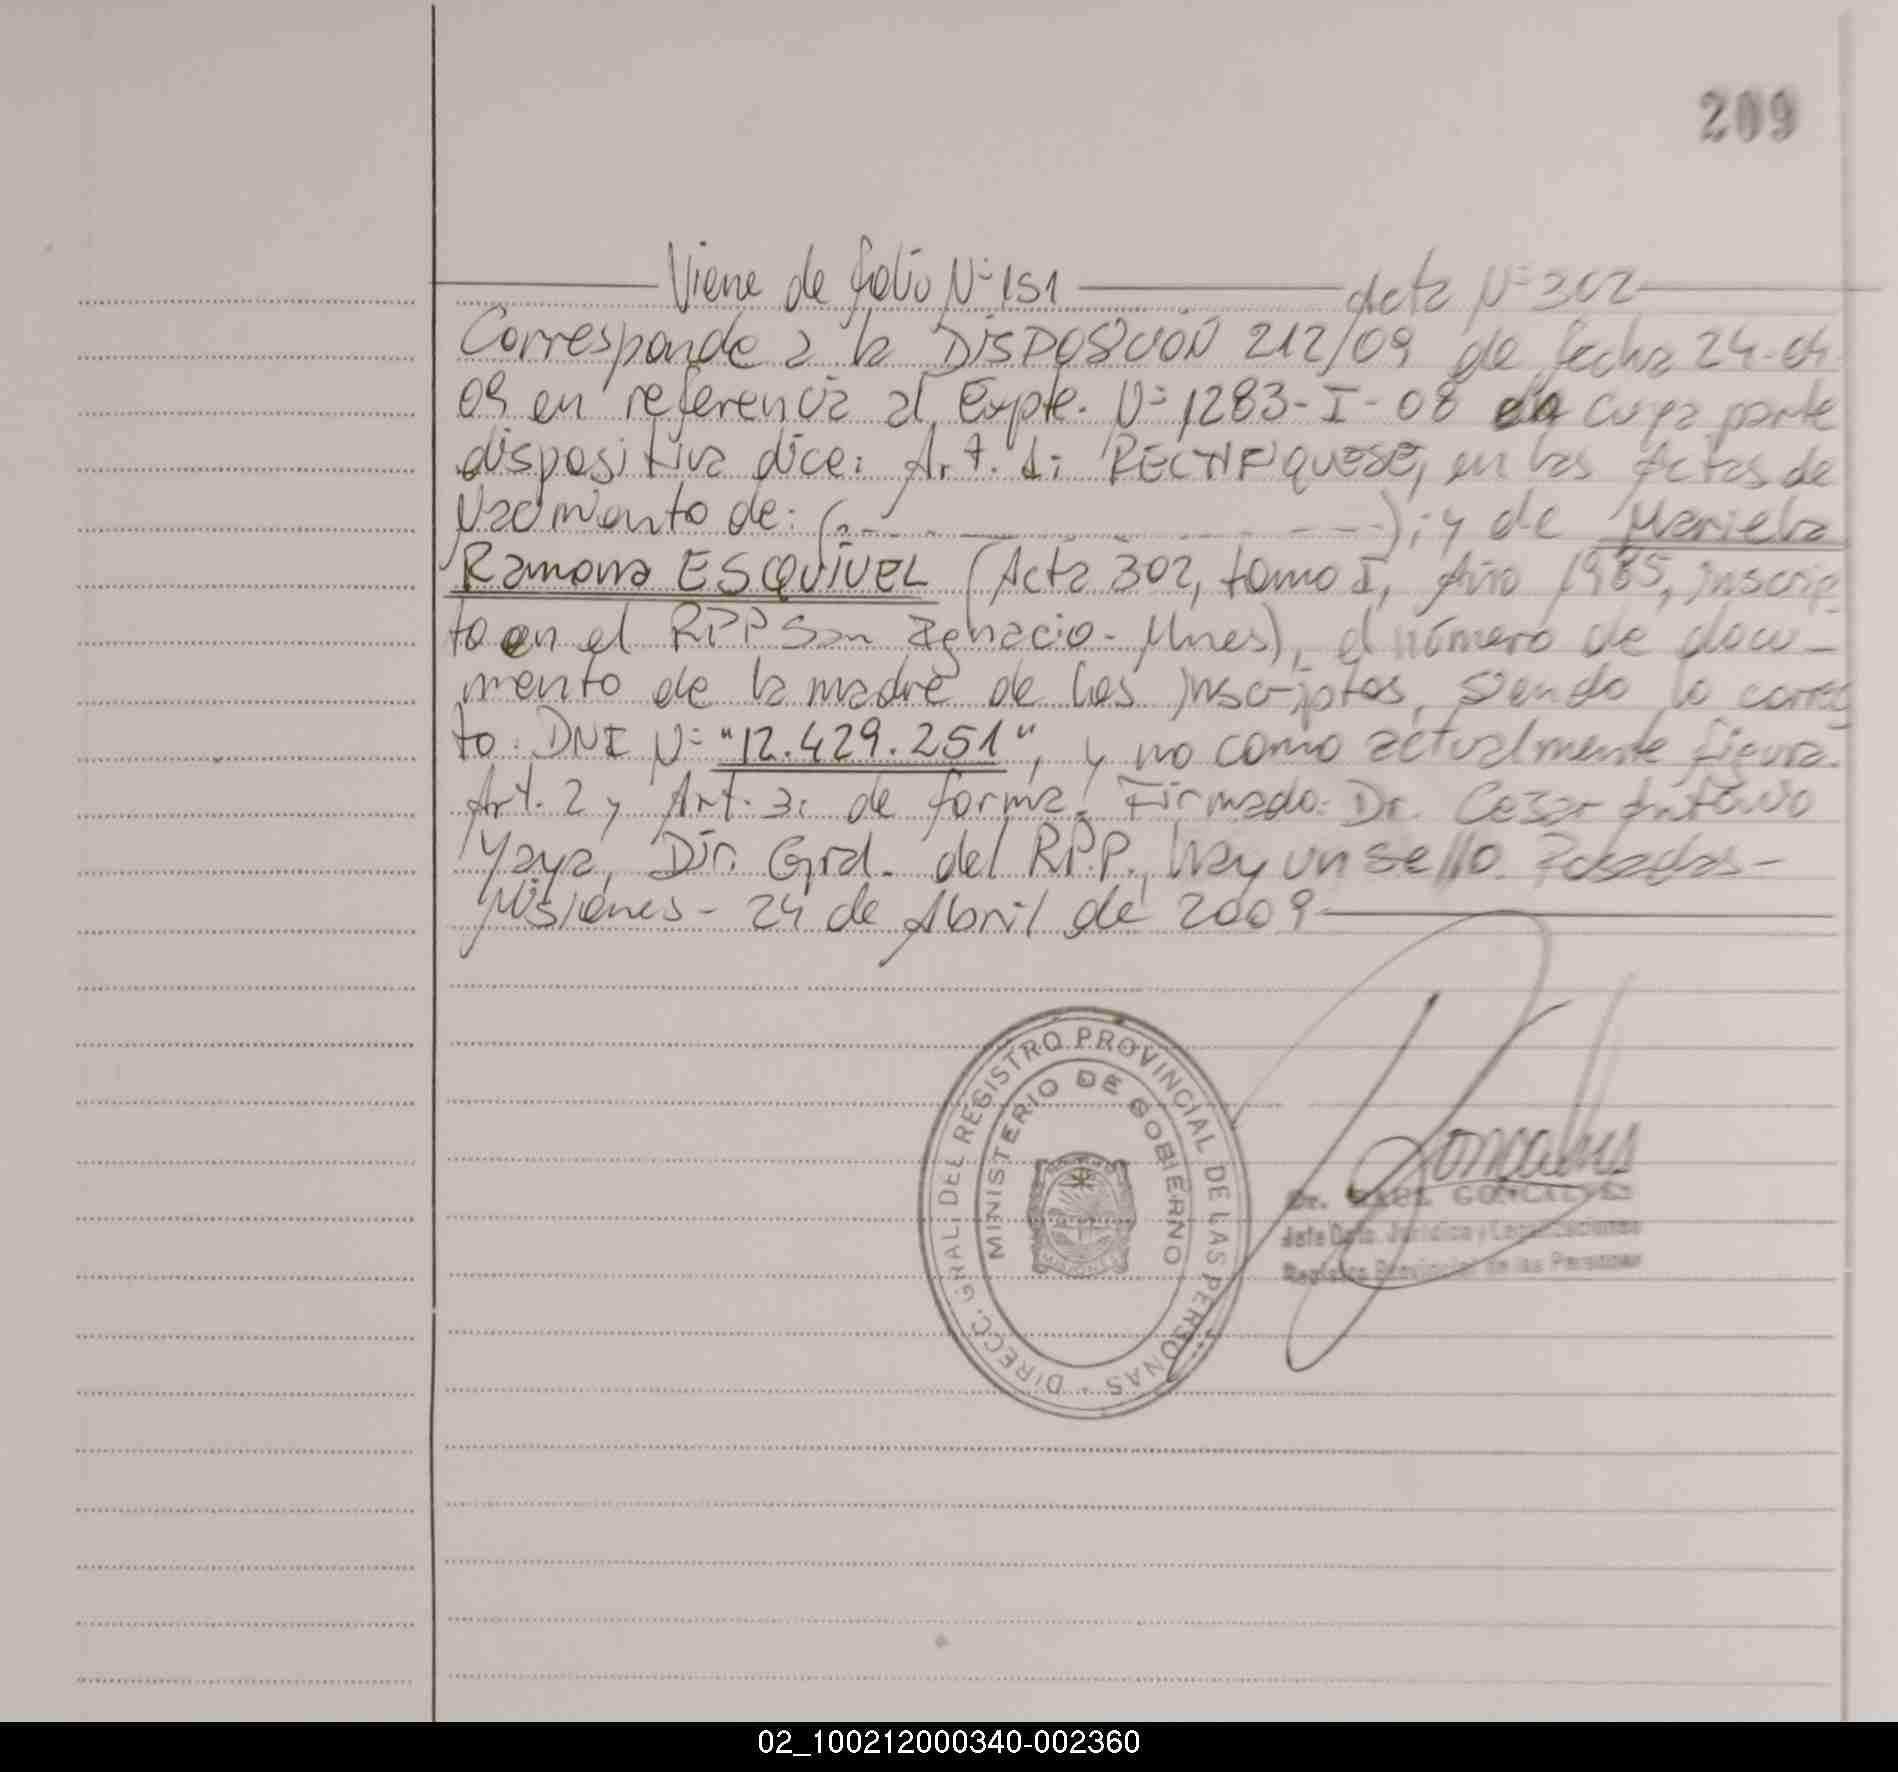 209
Viene de folio Nº 151 acta Nº 302
Corresponde a la DISPOSICIÓN 212/09 de fecha 24-04-
09 en referencia al Expte. Nº 1283-I-08 en cuya parte
dispositiva dice: Art. 1: RECTIFIQUESE, en las Actas de
Nacimiento de: (- - - - - - -); y de Mariela
Ramona ESQUIVEL (Acta 302, tomo I, Año 1985, inscrip-
to en el RPP San Ignacio - Mnes), el número de docu-
mento de la madre de los inscriptos, siendo lo correc
to: DNI Nº "12.429.251", y no como actualmente figura.
Art. 2 y Art. 3: de forma. Firmado: Dr. Cesar Antonio
Yaya, Dir. Gral. del R.P.P., hay un sello. Posadas -
Misiones - 24 de Abril de 2009
DIRECC. GRAL. DEL REGISTRO PROVINCIAL DE LAS PERSONAS
MINISTERIO DE GOBIERNO
MISIONES
Dr. GONCALVES
Jefe Dpto. Jurídica y
Registro Provincial de las Personas
02_100212000340-002360